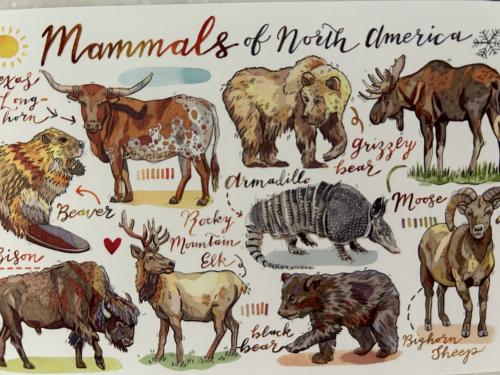 Mammals of North America
Texas
Long-
horn
Grizzly
bear
Armadillo
Beaver
Rocky
Mountain
Elk
Moose
Bison
black
bear
Bighorn
Sheep